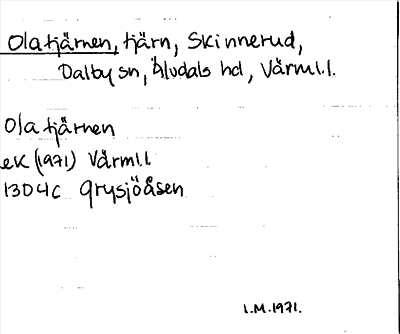 Olatjärnen, tjärn, Skinnerud,
Dalby sn, Älvdals hd, Värml.l.
Olatjärnen
ek (1971) Värml.l
13D4c Grysjöåsen
I.M.1971.